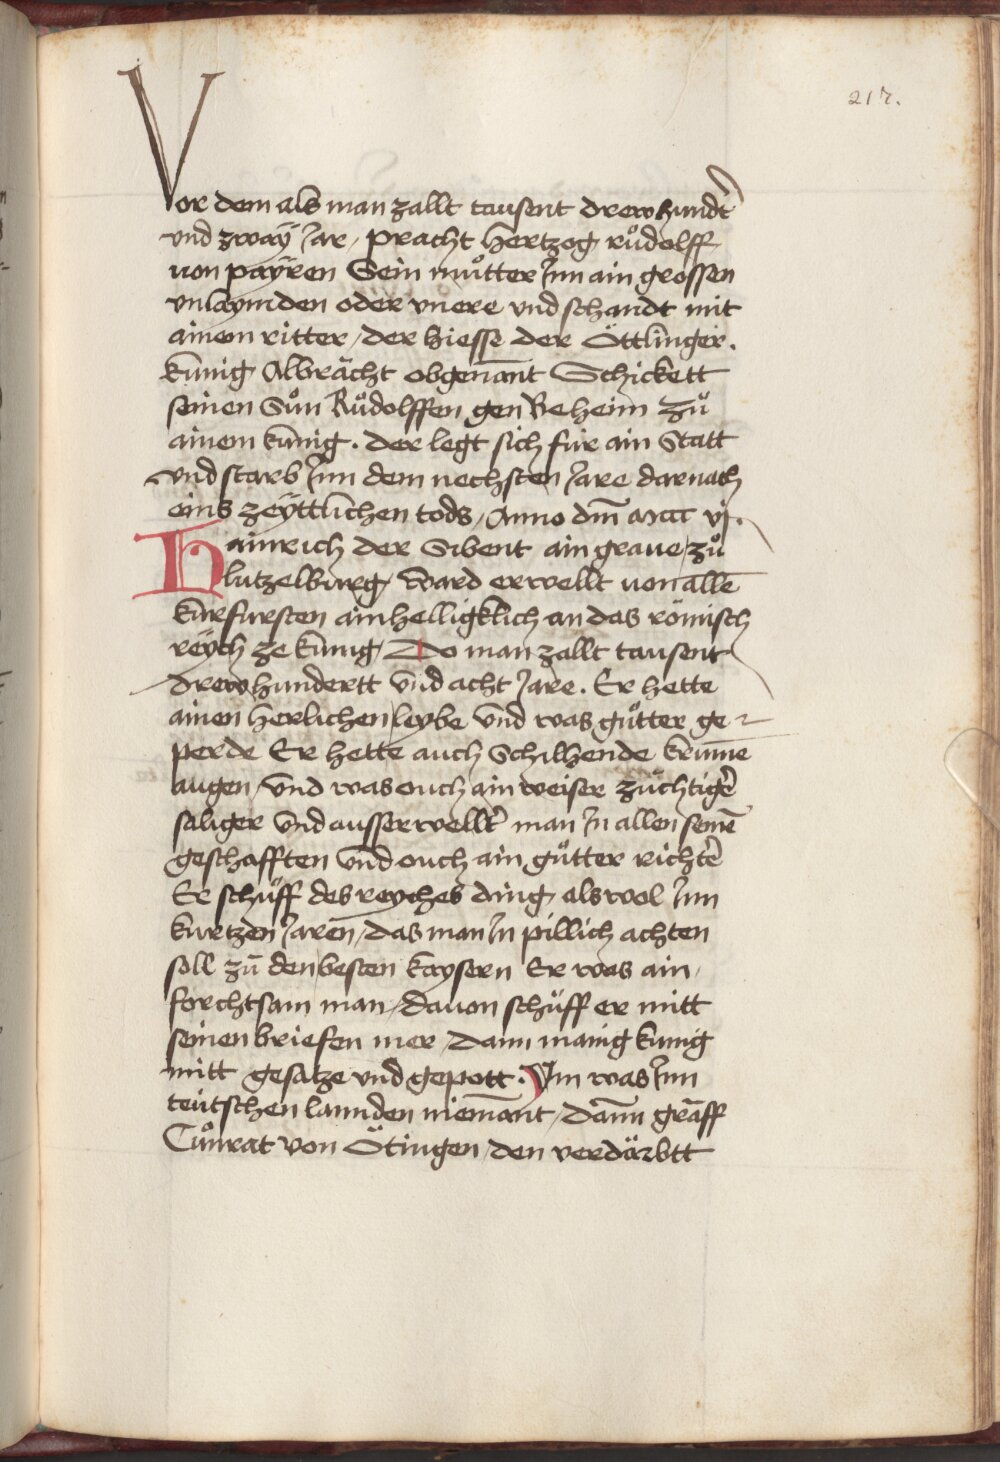 217.
Vor dem als man zallt tausent drewhundert
vnd zway Jar, pracht hertzog růdolff
von payren Sein můtter Jnn ain grossen
vnlaymden oder vnere vnd schandt mit
ainem ritter, der hiesse der Öttlinger.
künig Albrächt obgenant Schickett
seinen Sůn Růdolffen gen Beheim zů
ainem künig. der legt sich für ain Statt
vnd starb Jnn dem nechsten Jare darnach
eins zeyttlichen tods, Anno dm̄ mccc vj.
Hainrich der Sibent ain graue zů
lützelburg, ward erwellt von alle͞
kürfursten ainhelligklich an das römisch
reych ze künig, Do man zallt tausent
drewhundertt vnd acht Jare. Er hette
ainen herlichen leybe vnd was gůtter ge
perde Er hette auch Schilhende krume
augen, vnd was ouch ain weiser züchtiger
säliger vnd ausserwellter man Jn allen seine͞
geschafften vnd ouch ain gůtter richter
Er schůff des reyches ding, als wol Jnn
kurtzen Jaren, das man Jn pillich achten
soll zů den besten kaysern Er was ain,
forchtsam man, dauon schůff er mitt
seinen briefen mer, dann manig künig
mitt gesatze vnd gepott. Im was Jnn
teütschen lannden niemant, dann gräff
Cůnrat von Ötingen, den verdärbtt